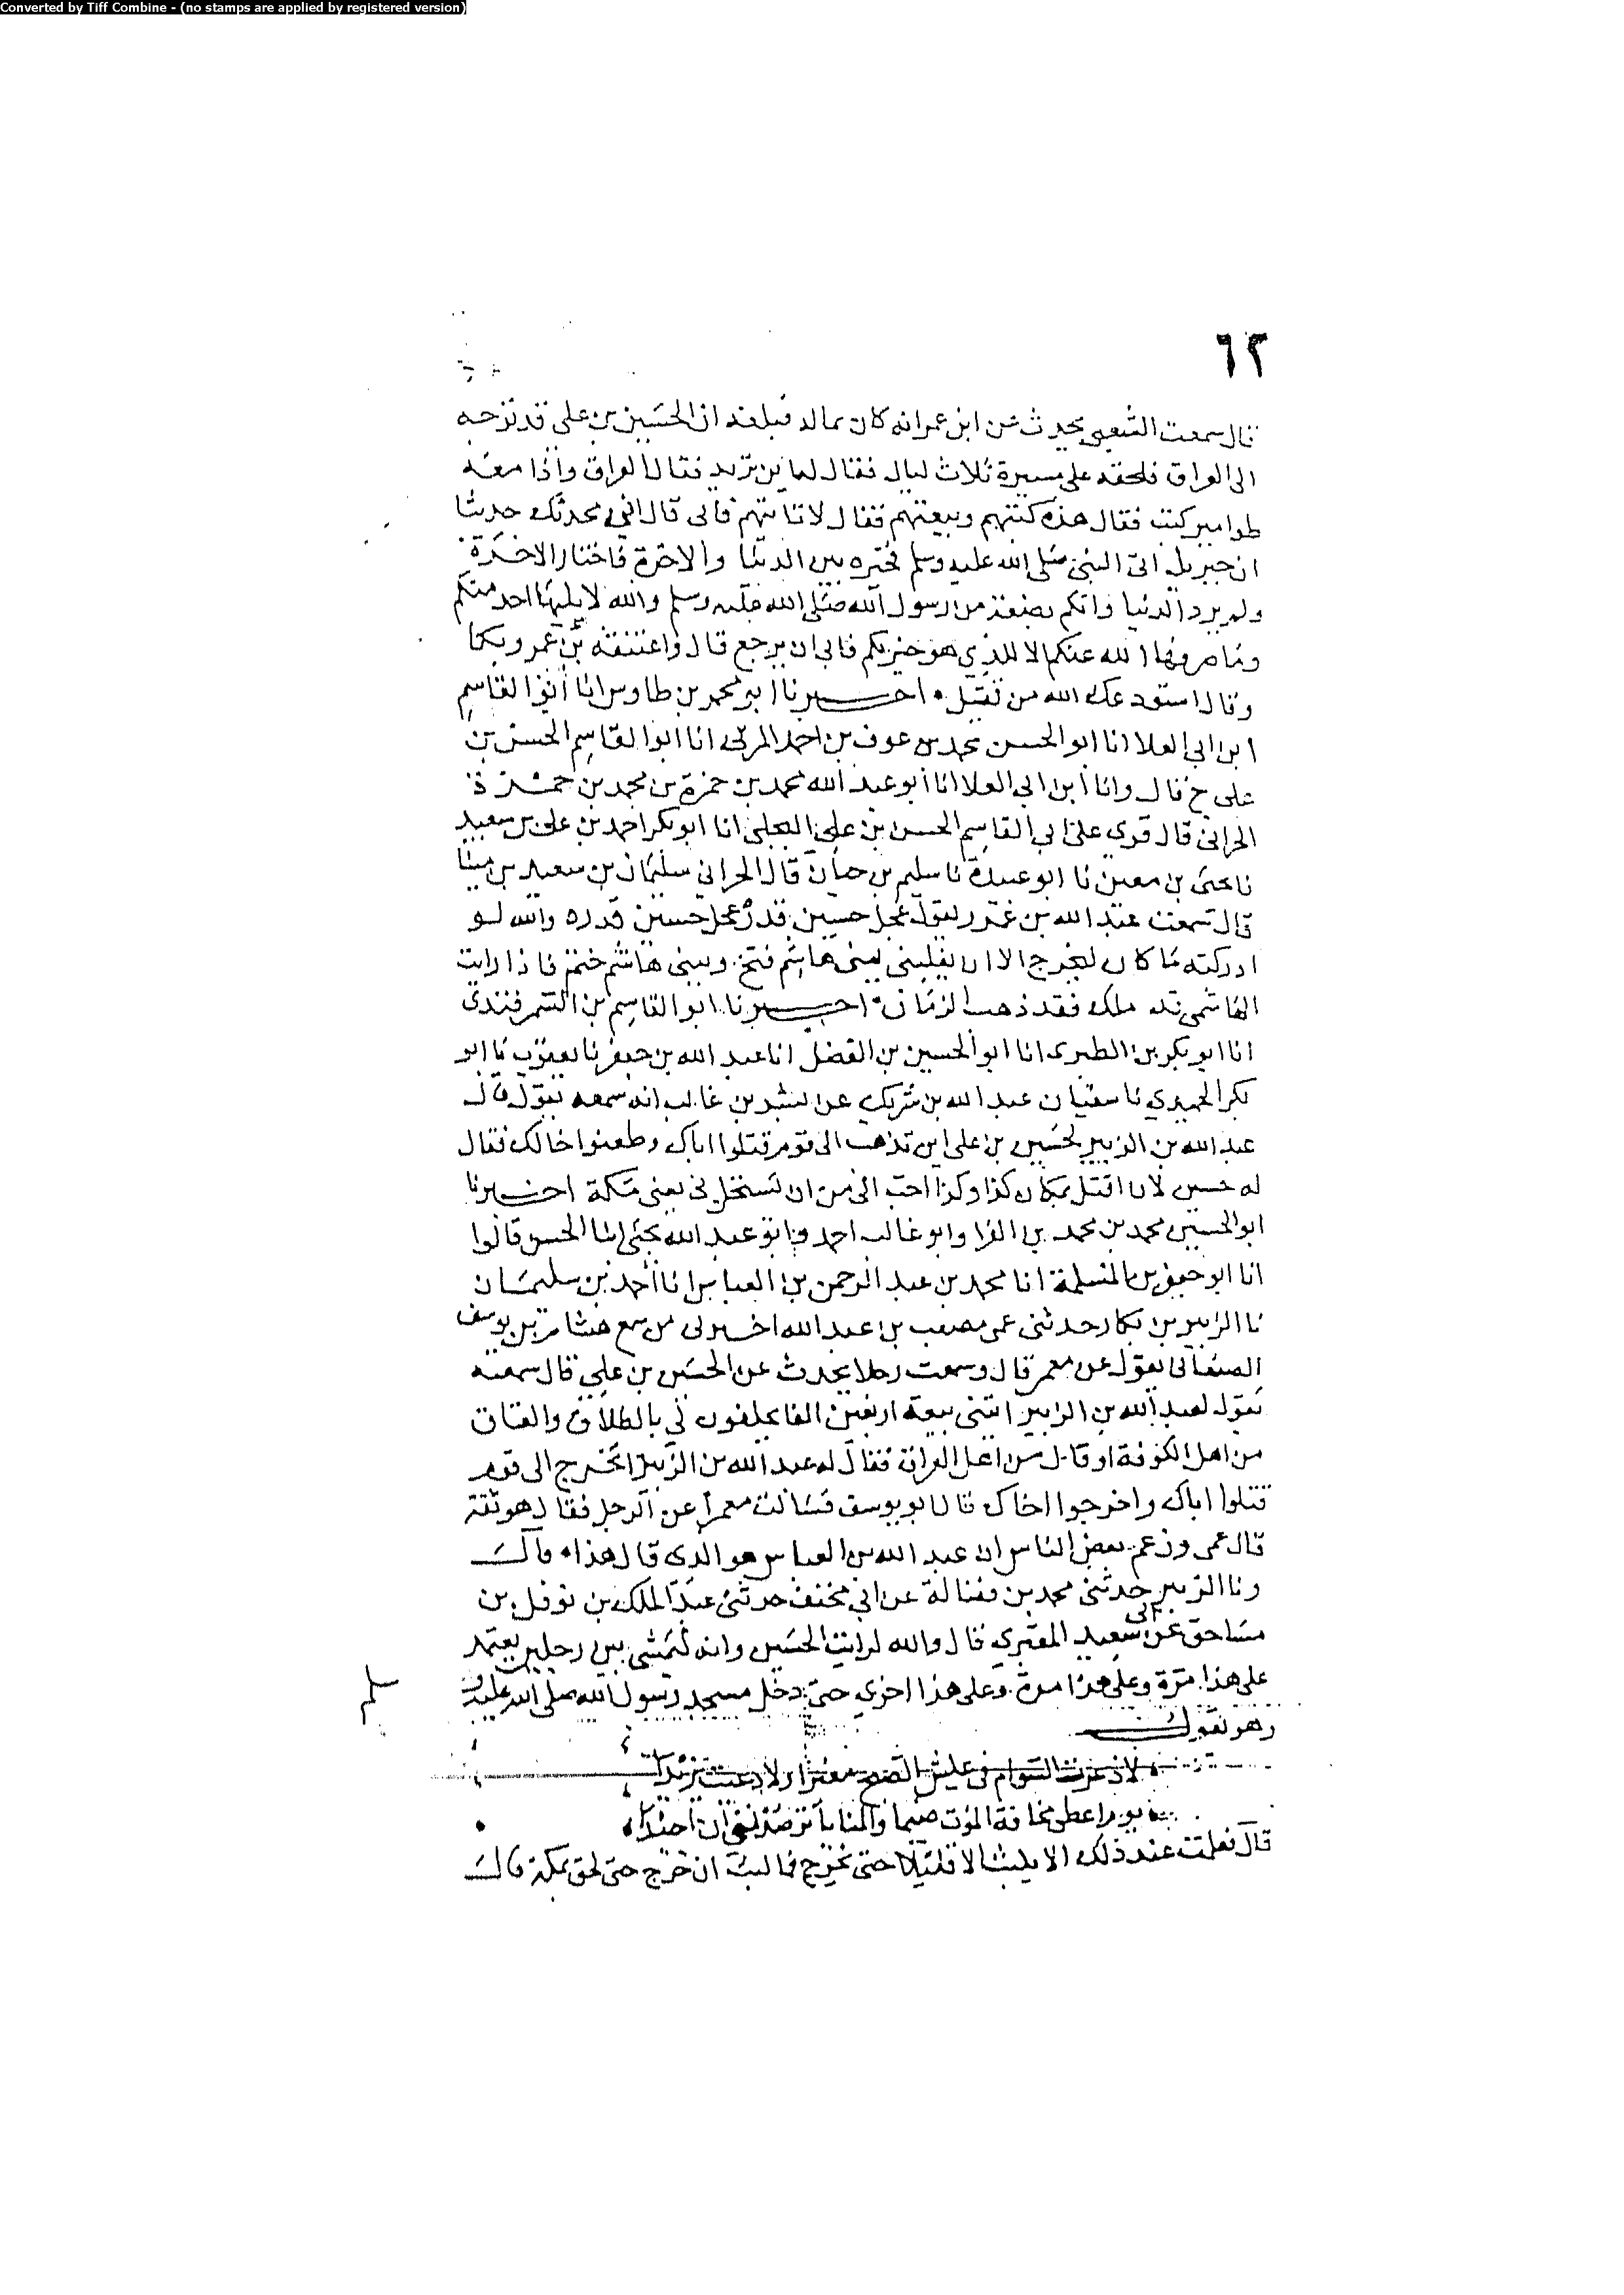 Converted by Tiff Combine - (no stamps are applied by registered version)
٦٢
قال سمعت الشعبي يحدث عن ابن عمر انه كان بماله فبلغه ان الحسين بن علي قد توجه
الى العراق فلحقه على مسيرة ثلاث ليال فقال له اين تريد فقال العراق واذا معه
طوامير كتب فقال هذه كتبهم وبيعتهم فقال لا تاتيهم فابى قال اني محدثك حديثا
ان جبريل اتى النبي صلى الله عليه وسلم فخيره بين الدنيا والاخرة فاختار الاخرة
ولم يرد الدنيا وانكم بضعة من رسول الله صلى الله عليه وسلم والله لا يليها احد منكم
وما صرفها الله عنكم الا للذي هو خير لكم فابى ان يرجع قال فاعتنقه بن عمر وبكا
وقال استودعك الله من قتيل اخبرنا ابو محمد بن طاوس انا ابو القاسم
ابن ابي العلا انا ابو الحسن محمد بن عوف بن احمد المزني انا ابو القاسم الحسن بن
علي ح قال وانا ابن ابي العلا انا ابو عبد الله محمد بن حمزة بن محمد بن حمزة
الحراني قال قرى على ابي القاسم الحسن بن علي البجلي انا ابو بكر احمد بن علي بن سعيد
نا يحيى بن معين نا ابو عبيدة نا سليم بن حيان قال الحراني سليمان بن سعيد بن مينا
قال سمعت عبد الله بن عمرو يقول عجل حسين قدره عجل حسين قدره والله لو
ادركته ما كان ليخرج الا ان يغلبني ببني هاشم فتح وببني هاشم ختم فاذا رايت
الهاشمي قد ملك فقد ذهب الزمان اخبرنا ابو القاسم بن السمرقندي
انا ابو بكر بن الطبري انا ابو الحسين بن الفضل انا عبد الله بن جعفر نا يعقوب نا ابو
بكر الحميدي نا سفيان عبد الله بن شريك عن بشر بن غالب انه سمعه يقول قال
عبد الله بن الزبير لحسين بن علي اين تذهب الى قوم قتلوا اباك وطعنوا اخاك فقال
له حسين لان اقتل بمكان كذا وكذا احب الي من ان تستحل بي يعني مكة اخبرنا
ابو الحسين محمد بن محمد بن الفرا وابو غالب احمد وابو عبد الله يحيى ابنا الحسن قالوا
انا ابو جعفر بن المسلمة انا محمد بن عبد الرحمن بن العباس انا احمد بن سليمان
نا الزبير بن بكار حدثني عمي مصعب بن عبد الله اخبرني من سمع هشام بن يوسف
الصنعاني يقول عن معمر قال وسمعت رجلا يحدث عن الحسين بن علي قال سمعته
يقول لعبد الله بن الزبير اتتني بيعة اربعين الفا يحلفون لي بالطلاق والعتاق
من اهل الكوفة او قال من اهل العراق فقال له عبد الله بن الزبير اتخرج الى قوم
قتلوا اباك واخرجوا اخاك قال ابو يوسف فسالت معمرا عن الرجل فقال هو ثقة
قال عمي وزعم بعض الناس ان عبد الله بن العباس هو الذي قال هذا قال
ونا الزبير حدثني محمد بن فضالة عن ابي مخنف حدثني عبد الملك بن نوفل بن
مساحق عن ابي سعيد المقبري قال والله لرايت الحسين وانه ليمشي بين رجلين يعتمد
على هذا مرة وعلى هذا مرة وعلى هذا اخرى حتى دخل مسجد رسول الله صلى الله عليه وسلم
وهو يقول
لا ذعرت السوام في غلس الصبح مغيرا ولا دعيت يزيدا
يوم اعطي مخافة الموت ضيما والمنايا ترصدنني ان احيدا
قال فعلمت عند ذلك الا يلبث الا قليلا حتى يخرج فما لبث ان خرج حتى لحق بمكة قال